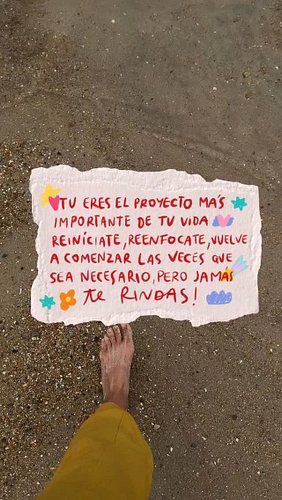 TU ERES EL PROYECTO MÁS
IMPORTANTE DE TU VIDA
REINÍCIATE, REENFOCATE, VUELVE
A COMENZAR LAS VECES QUE
SEA NECESARIO, PERO JAMÁS
te RINDAS!